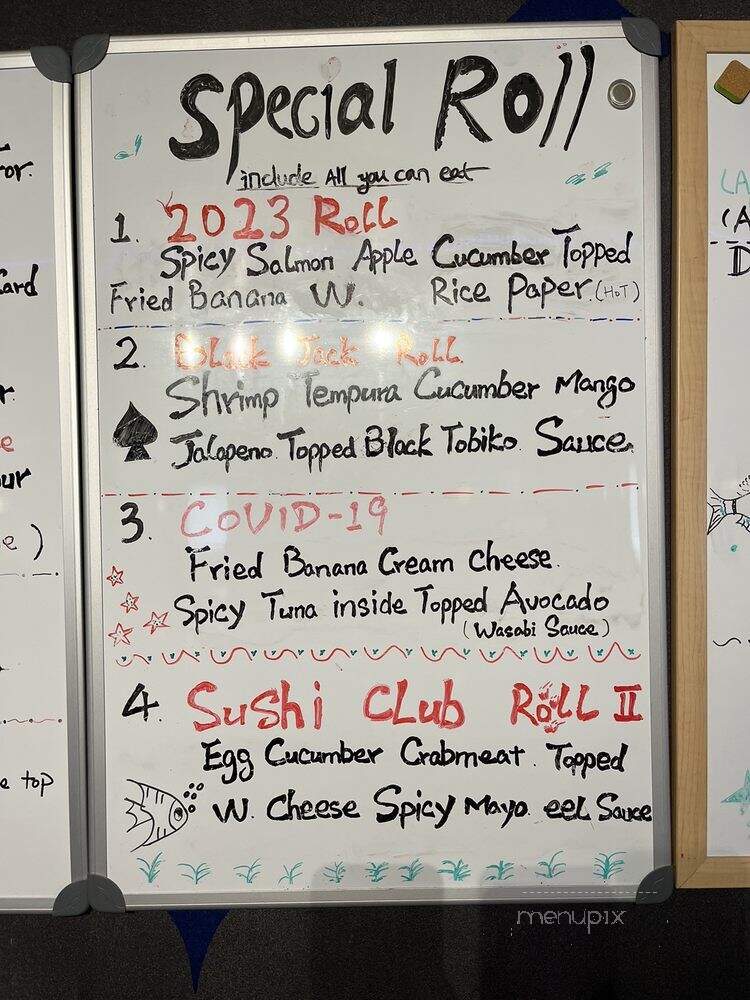 Special Roll
include All you can eat
1. 2023 Roll
Spicy Salmon Apple Cucumber Topped
Fried Banana W. Rice Paper (HoT)
2. Black Jack Roll
Shrimp Tempura Cucumber Mango
Jalapeno Topped Black Tobiko Sauce
3. COVID-19
Fried Banana Cream cheese.
Spicy Tuna inside Topped Avocado
(Wasabi Sauce)
4. Sushi CLub RoLL II
Egg Cucumber Crabmeat. Topped
W. Cheese Spicy Mayo eel Sauce
menupix